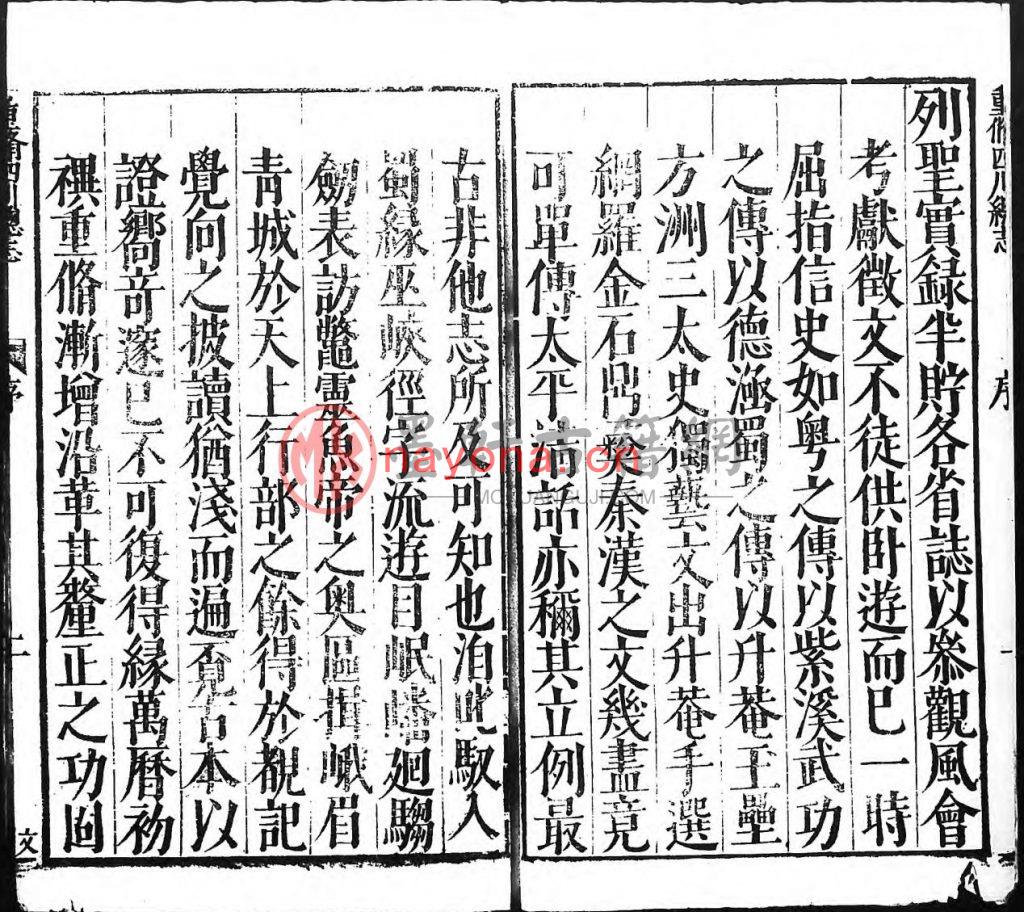 重脩四川總志
序
一
列聖實録半貯各省誌以叅觀風會
考獻徵文不徒供卧遊而已一時
屈指信史如粤之傳以紫溪武功
之傳以德涵蜀之傳以升菴玉壘
方洲三太史獨藝文出升菴手選
網羅金石鼎彝秦漢之文幾盡竟
可單傳太平清話亦稱其立例最
古井他志所及可知也洎此馭入
蜀緣巫峽徑字流遊目岷嶓廻騶
劒表訪鼈靈魚帝之奥區揖峨眉
青城於天上行部之餘得於覩記
覺向之披讀猶淺而遍覔古本以
證嚮竒邃已不可復得緣萬曆初
禩重脩漸增沿革其釐正之功囱
重脩四川總志
序
二
文
墨軒古籍網
nayona.cn